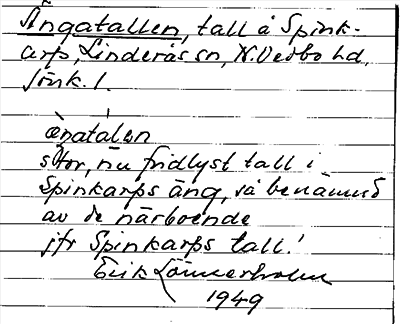 Ängatallen, tall å Spink-
arp, Linderås sn, N. Vedbo hd,
Jönk. l.
æ̀ŋatálən
stor, nu fridlyst tall i
Spinkarps äng, så benämnd
av de närboende
jfr Spinkarps tall!
Erik Lönnerholm
1949